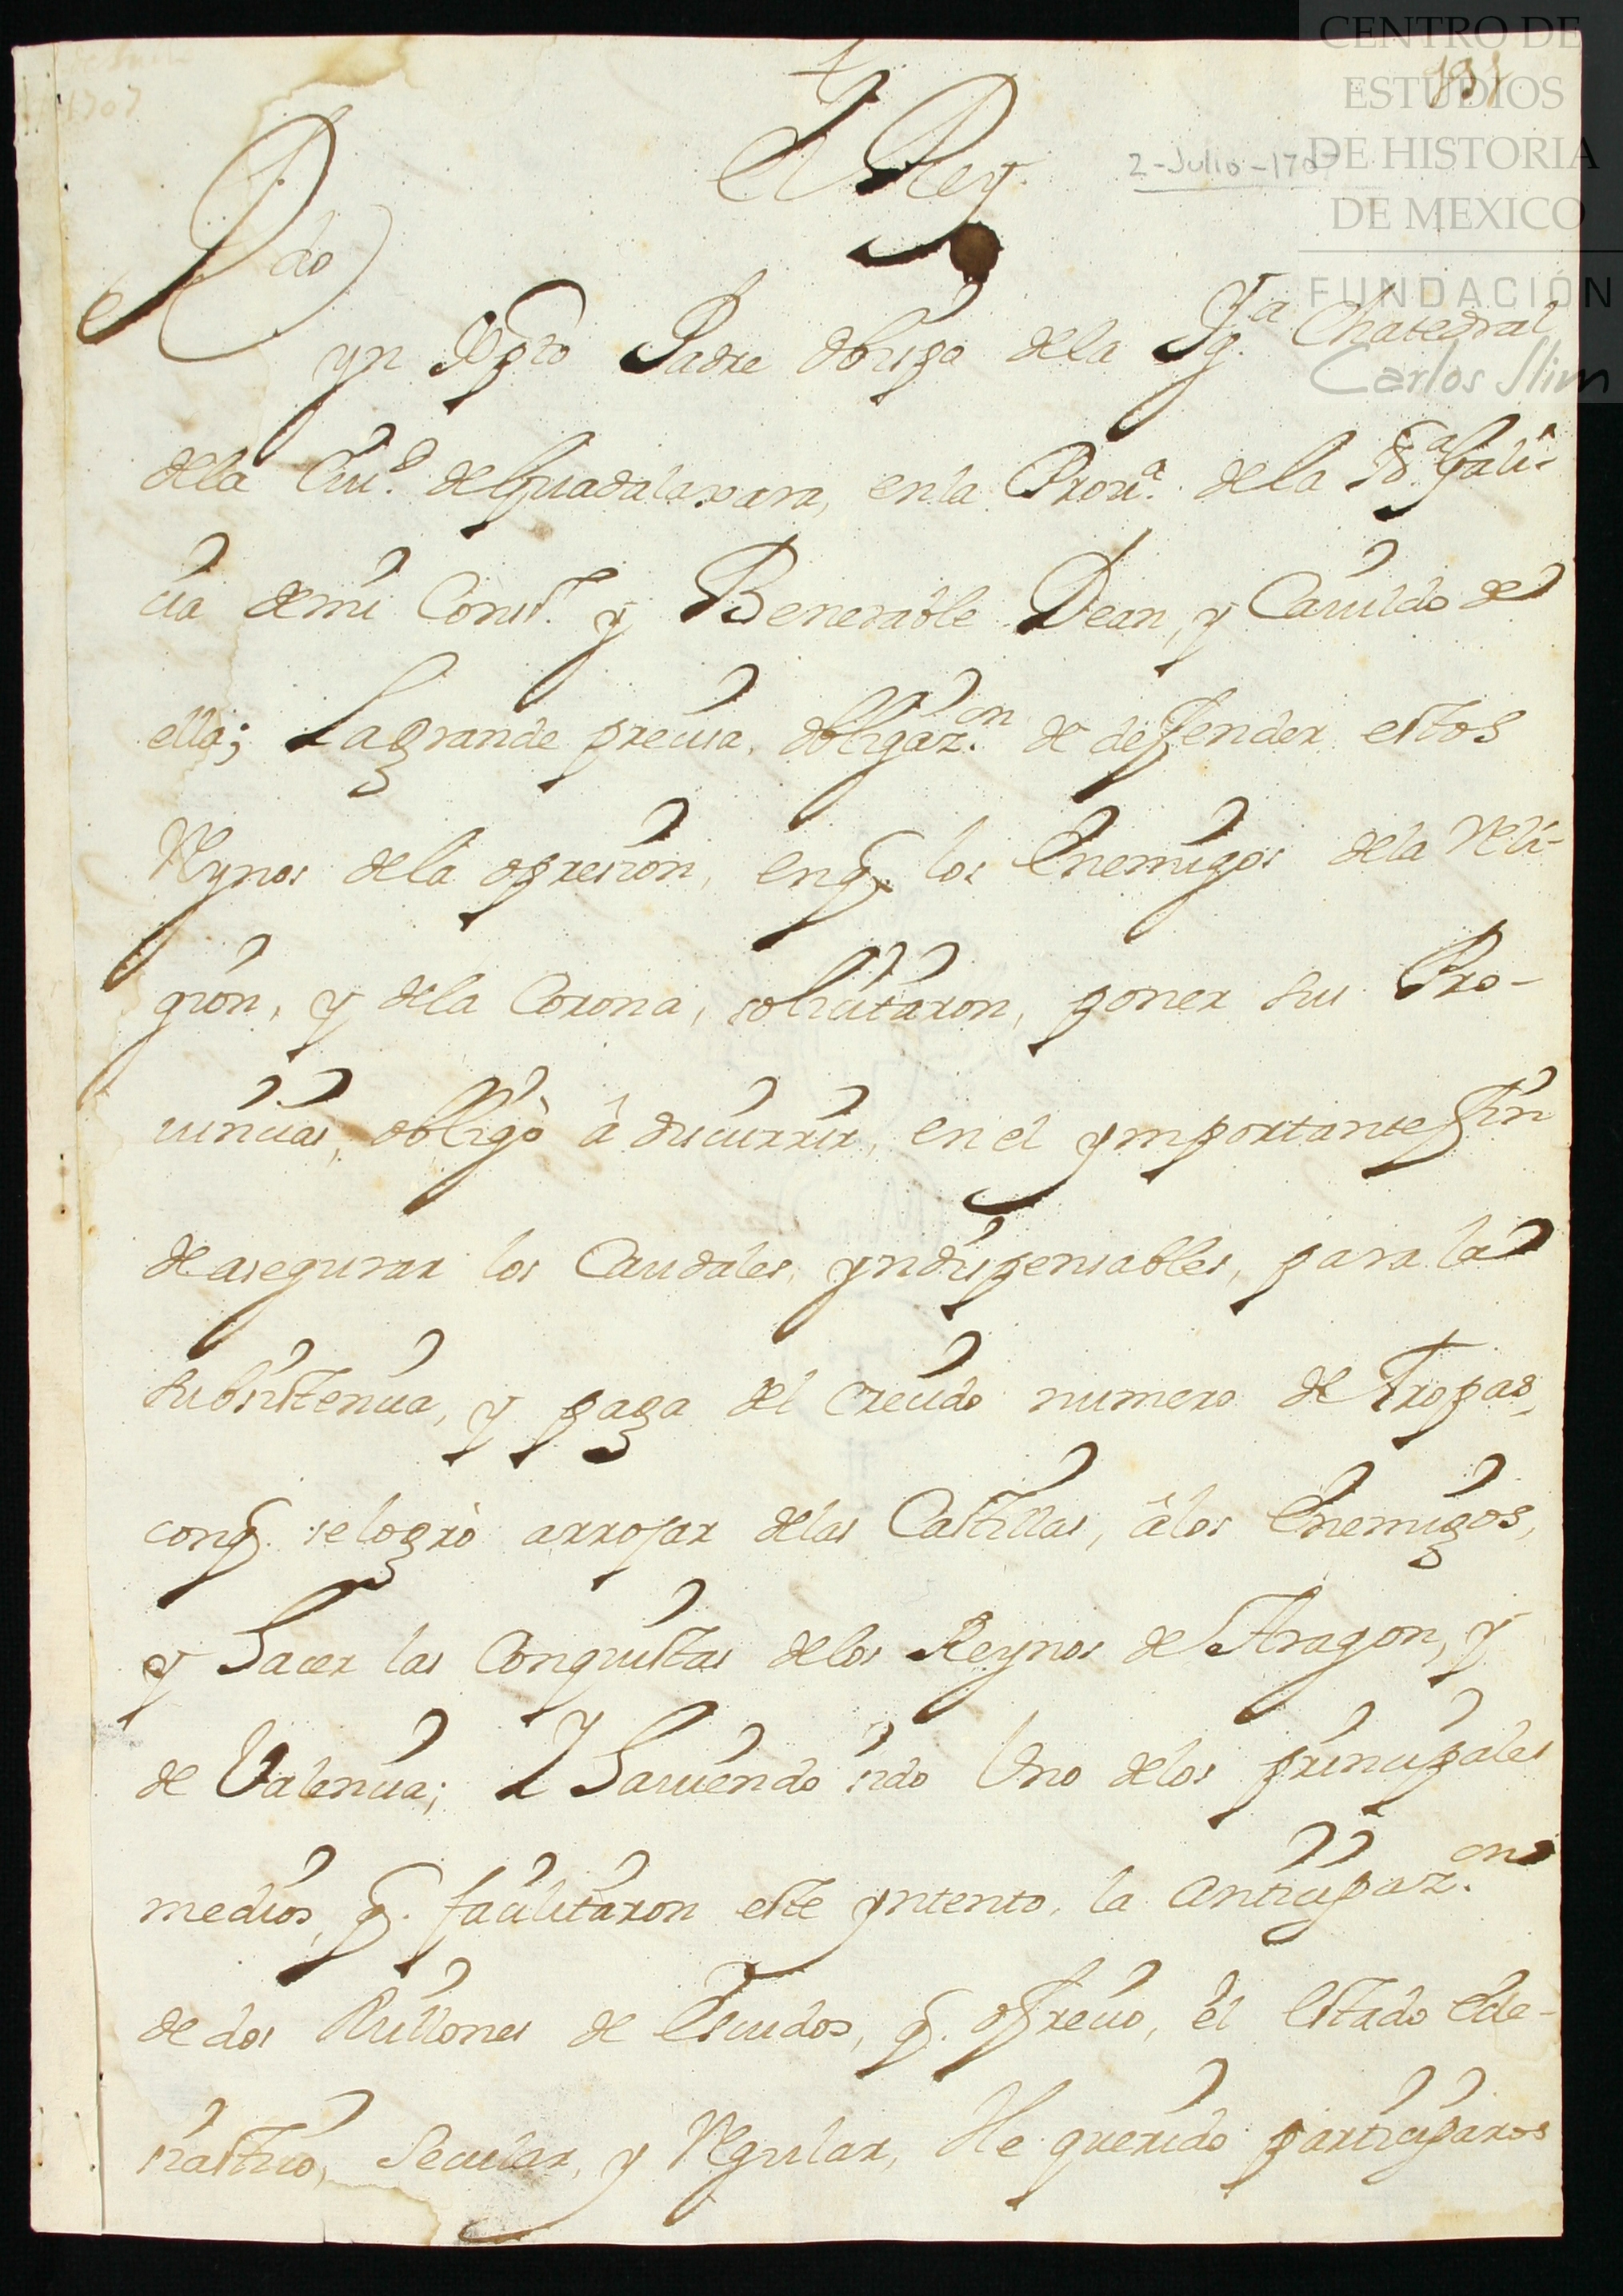 CENTRO DE
ESTUDIOS
DE HISTORIA
DE MEXICO
FUNDACIÓN
Carlos Slim
1707
El Rey.
2-Julio-1707
Rdo
yn Xpto Padre obispo dela Yg.ª Chatedral
dela Ciu.d de Guadalaxara, en la Prou.ª dela N.ª Gali-
cia demi Cons.º y Benerable Dean, y Cauildo de
ella; La grande precisa, obligaz.on de defender estos
Reynos dela opresion, en q. los Enemigos dela Reli-
gion, y dela Corona, solicitaron, poner sus Pro-
uincias, obligò â discurrir, en el ymportante fin
de asegurar los Caudales, yndispensables, para la
subsistencia, y paga del crecido numero de Tropas,
con q. se logrò arrojar delas Castillas, â los Enemigos,
y Hacer las Conquistas delos Reynos de Aragon, y
de Valencia; Y Hauiendo sido Uno delos principales
medios, q. facilitaron este yntento, la anticipaz.on
de dos Millones de Escudos, q. ofrecio, el estado Ecle-
siastico, Secular, y Regular, He querido participaros